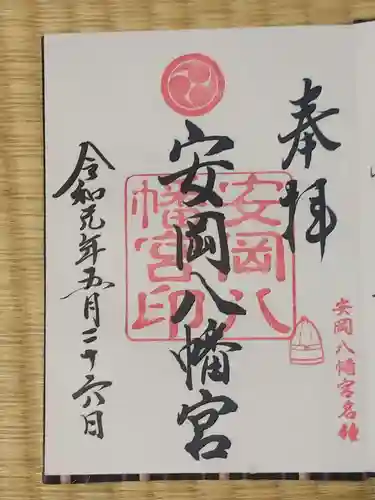 奉拝
安岡八幡宮名鐘
安岡八幡宮
安岡八
幡宮印
令和元年五月二十六日